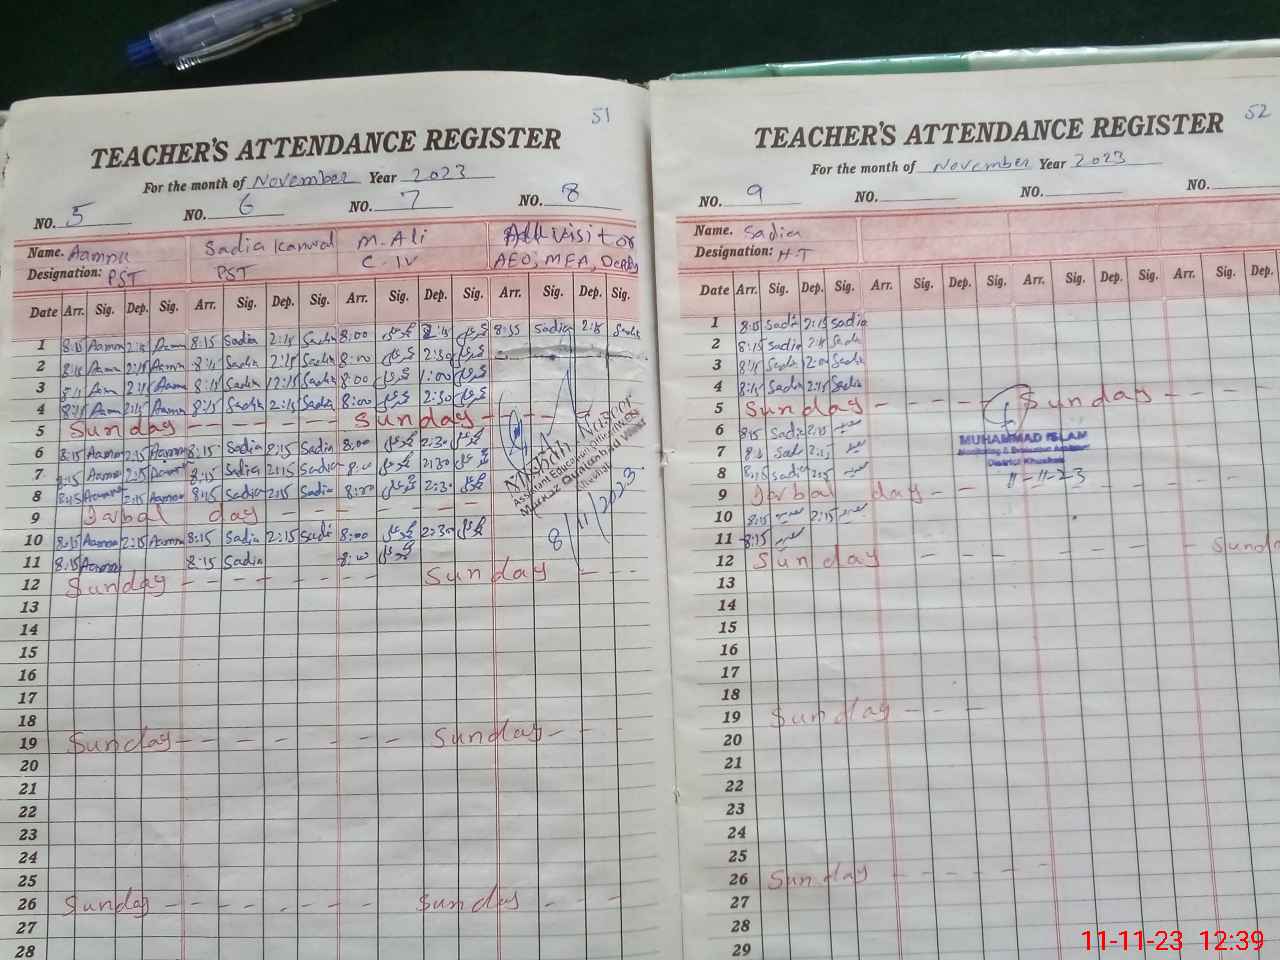 51
TEACHER'S ATTENDANCE REGISTER
For the month of November Year 2023
NO. 5 NO. 6 NO. 7 NO. 8
Name. Aamna Sadia Kanwal M. Ali Visitor
Designation: PST PST C-IV AEO, MEA,
Date Arr. Sig. Dep. Sig. Arr. Sig. Dep. Sig. Arr. Sig. Dep. Sig. Arr. Sig. Dep. Sig.
1 8:15 Aamna 2:15 Aamna 8:15 Sadia 2:15 Sadia 8:00 2:15 8:35 Sadia 2:15 Sadia
2 8:15 Aamna 2:15 Aamna 8:15 Sadia 2:15 Sadia 8:00 2:30
3 8:15 Aamna 2:15 Aamna 8:15 Sadia 12:15 Sadia 8:00 1:00
4 8:15 Aamna 2:15 Aamna 8:15 Sadia 2:15 Sadia 8:00 2:30
5 Sunday - - - - - Sunday - - -
6 8:15 Aamna 2:15 Aamna 8:15 Sadia 2:15 Sadia 8:00 2:30
7 8:15 Aamna 2:15 Aamna 8:15 Sadia 2:15 Sadia 8:00 2:30
8 8:15 Aamna 2:15 Aamna 8:15 Sadia 2:15 Sadia 8:00 2:30
9 Iqbal day - - - - - -
10 8:15 Aamna 2:15 Aamna 8:15 Sadia 2:15 Sadia 8:00 2:30
11 8:15 Aamna 8:15 Sadia 8:00
12 Sunday - - - - - - Sunday - -
13
14
15
16
17
18
19 Sunday - - - - - - Sunday - - -
20
21
22
23
24
25
26 Sunday - - - - - - Sunday - - -
27
28
Assistant Education Officer
Markaz
Khushab
8/11/2023
52
TEACHER'S ATTENDANCE REGISTER
For the month of November Year 2023
NO. 9 NO. NO. NO.
Name. Sadia
Designation: H-T
Date Arr. Sig. Dep. Sig. Arr. Sig. Dep. Sig. Arr. Sig. Dep. Sig. Arr. Sig. Dep.
1 8:15 Sadia 2:15 Sadia
2 8:15 Sadia 2:15 Sadia
3 8:15 Sadia 12:00 Sadia
4 8:15 Sadia 2:15 Sadia
5 Sunday - - - - Sunday - - -
6 8:15 Sadia 2:15
7 8:15 Sadia 2:15
8 8:15 Sadia 2:15
9 Iqbal day - - - - - - - - -
10 8:15 2:15
11 8:15
12 Sunday - - - - - - - - Sunda
13
14
15
16
17
18
19 Sunday - - -
20
21
22
23
24
25
26 Sunday - - - - -
27
28
29
MUHAMMAD ISLAM
Monitoring & Evaluation Assistant
District Khushab
11-11-23
11-11-23 12:39